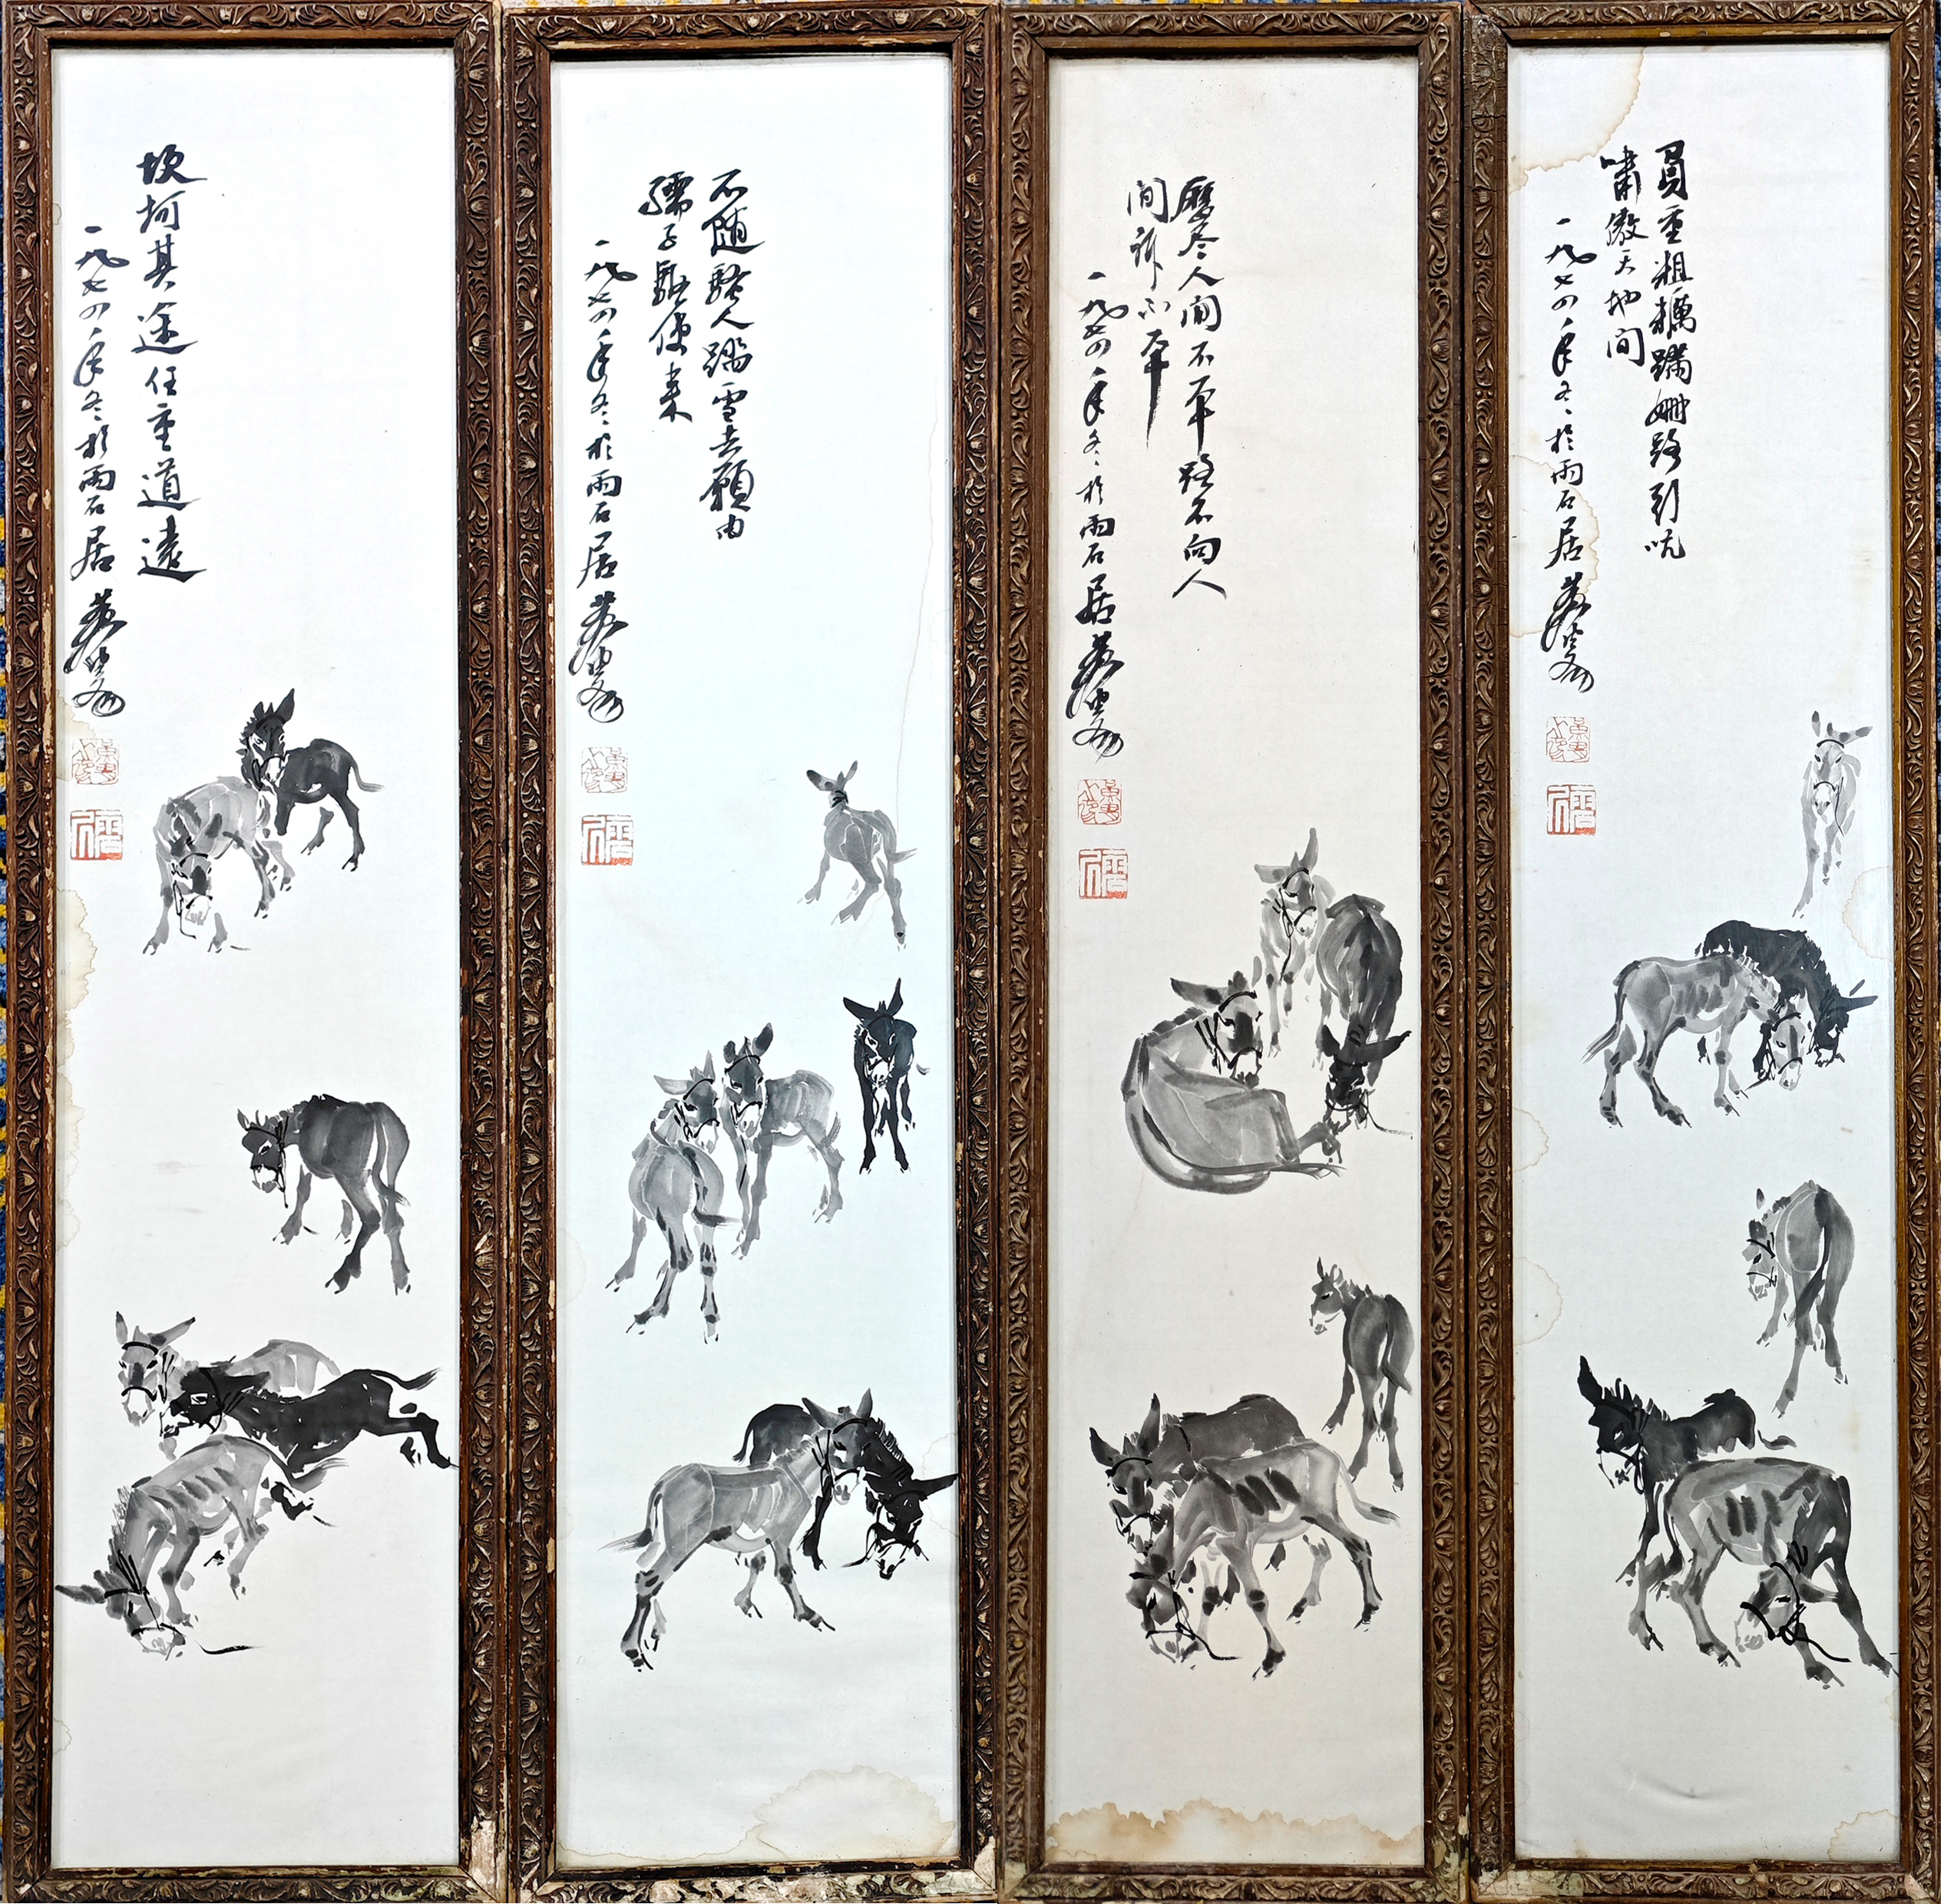 員重粗糲蹒姗路引吭
嘯傲天地间
一九七四年冬於雨石居 黄胄
歷尽人间不平路不向人
间訴不平
一九七四年冬於雨石居 黄胄
不随骚人踏雪去願由
孺子驅使来
一九七四年冬於雨石居 黄胄
坎坷其途任重道遠
一九七四年冬於雨石居 黄胄